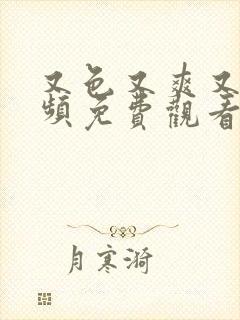 又色又爽又
頻免費觀看
月寒漪